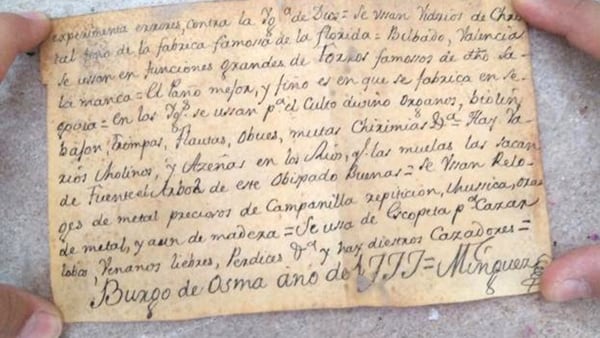 experimenta errores, contra la Ygª de Dios = Se ussan Vidrios de Chris
tal fino de la fabrica famossa de la florida = Bilbado, Valencia
Se ussan en funciones grandes de torros famossos de dho Sa-
lamanca = El Pano mejor, y fino es en que se fabrica en se-
govia = en las Ygˢ. se ussan pª el Culto divino Organos, biolin,
bajon, trompas, Flautas, Obues, mutas Chirimias &ª = Hay Va-
rios Molinos, y Azeñas en los Rios, y las muelas las sacan
de Fuentel Arbol de este Obispado Buenas = Se Ussan Relo-
ges de metal preciosos de Campanilla repiticion, Mussica,
de metal, y aun de madera = Se usa de Escopeta pª Cazar
lobos, Venanos liebres, Perdices &ª y hay diestros Cazadores =
Burgo de Osma ano de 1777 = Minguez